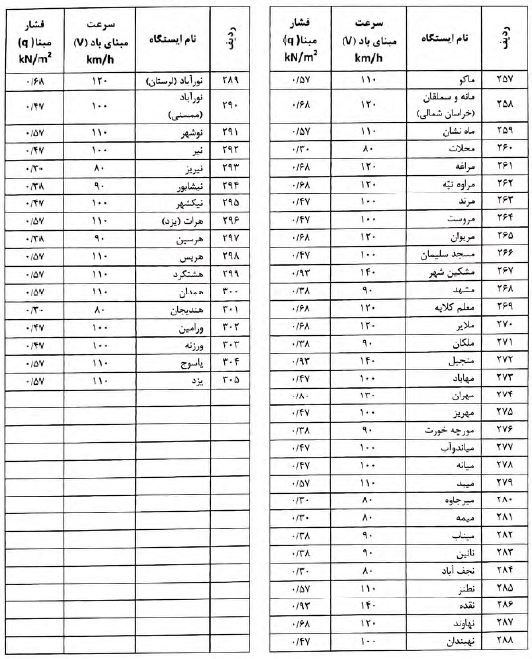 ردیف | نام ایستگاه | سرعت مبنای باد (V) km/h | فشار مبنا (q) kN/m²
۲۵۷ | ماکو | ۱۱۰ | ۰/۵۷
۲۵۸ | مانه و سملقان (خراسان شمالی) | ۱۲۰ | ۰/۶۸
۲۵۹ | ماه نشان | ۱۱۰ | ۰/۵۷
۲۶۰ | محلات | ۸۰ | ۰/۳۰
۲۶۱ | مراغه | ۱۲۰ | ۰/۶۸
۲۶۲ | مراوه تپّه | ۱۲۰ | ۰/۶۸
۲۶۳ | مرند | ۱۰۰ | ۰/۴۷
۲۶۴ | مروست | ۱۰۰ | ۰/۴۷
۲۶۵ | مریوان | ۱۲۰ | ۰/۶۸
۲۶۶ | مسجد سلیمان | ۱۰۰ | ۰/۴۷
۲۶۷ | مشکین شهر | ۱۴۰ | ۰/۹۳
۲۶۸ | مشهد | ۹۰ | ۰/۳۸
۲۶۹ | معلم کلایه | ۱۲۰ | ۰/۶۸
۲۷۰ | ملایر | ۱۲۰ | ۰/۶۸
۲۷۱ | ملکان | ۹۰ | ۰/۳۸
۲۷۲ | منجیل | ۱۴۰ | ۰/۹۳
۲۷۳ | مهاباد | ۱۰۰ | ۰/۴۷
۲۷۴ | مهران | ۱۳۰ | ۰/۸۰
۲۷۵ | مهریز | ۱۰۰ | ۰/۴۷
۲۷۶ | مورچه خورت | ۹۰ | ۰/۳۸
۲۷۷ | میاندوآب | ۱۰۰ | ۰/۴۷
۲۷۸ | میانه | ۱۰۰ | ۰/۴۷
۲۷۹ | میبد | ۱۱۰ | ۰/۵۷
۲۸۰ | میرجاوه | ۸۰ | ۰/۳۰
۲۸۱ | میمه | ۸۰ | ۰/۳۰
۲۸۲ | میناب | ۹۰ | ۰/۳۸
۲۸۳ | نائین | ۹۰ | ۰/۳۸
۲۸۴ | نجف آباد | ۸۰ | ۰/۳۰
۲۸۵ | نطنز | ۱۱۰ | ۰/۵۷
۲۸۶ | نقده | ۱۴۰ | ۰/۹۳
۲۸۷ | نهاوند | ۱۲۰ | ۰/۶۸
۲۸۸ | نهبندان | ۱۰۰ | ۰/۴۷
ردیف | نام ایستگاه | سرعت مبنای باد (V) km/h | فشار مبنا (q) kN/m²
۲۸۹ | نورآباد (لرستان) | ۱۲۰ | ۰/۶۸
۲۹۰ | نورآباد (ممسنی) | ۱۰۰ | ۰/۴۷
۲۹۱ | نوشهر | ۱۱۰ | ۰/۵۷
۲۹۲ | نیر | ۱۰۰ | ۰/۴۷
۲۹۳ | نیریز | ۸۰ | ۰/۳۰
۲۹۴ | نیشابور | ۹۰ | ۰/۳۸
۲۹۵ | نیکشهر | ۱۰۰ | ۰/۴۷
۲۹۶ | هرات (یزد) | ۱۱۰ | ۰/۵۷
۲۹۷ | هرسین | ۹۰ | ۰/۳۸
۲۹۸ | هریس | ۱۱۰ | ۰/۵۷
۲۹۹ | هشتگرد | ۱۱۰ | ۰/۵۷
۳۰۰ | همدان | ۱۱۰ | ۰/۵۷
۳۰۱ | هندیجان | ۸۰ | ۰/۳۰
۳۰۲ | ورامین | ۱۰۰ | ۰/۴۷
۳۰۳ | ورزنه | ۱۰۰ | ۰/۴۷
۳۰۴ | یاسوج | ۱۱۰ | ۰/۵۷
۳۰۵ | یزد | ۱۱۰ | ۰/۵۷